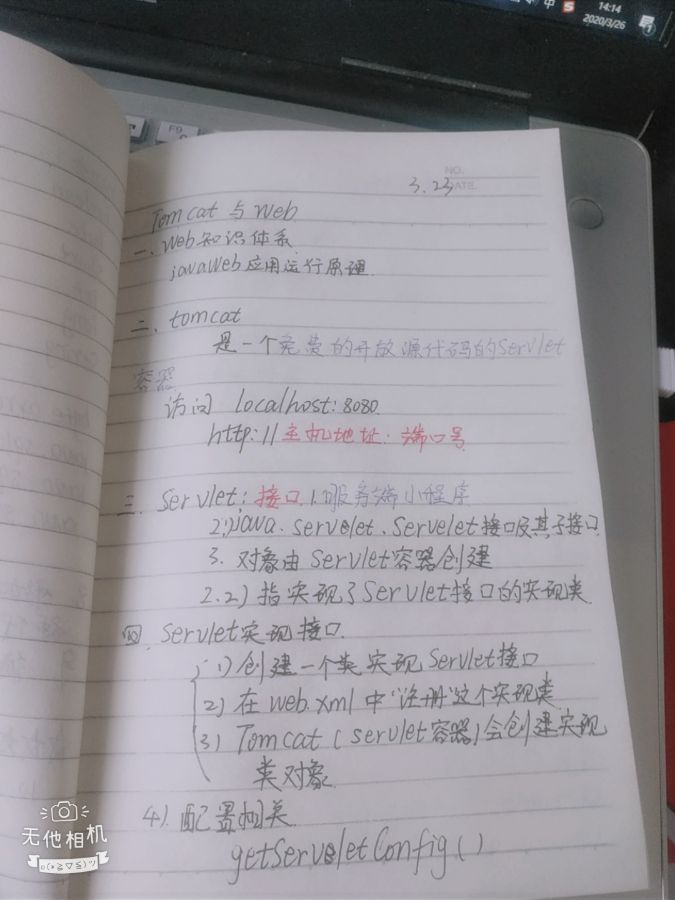 14:14
2020/3/26
中
S
F9
NO.
3.23 DATE
Tomcat 与 Web
一、Web知识体系
javaWeb应用运行原理
二、tomcat
是一个免费的开放源代码的Servlet
容器
访问 localhost:8080
http://主机地址:端口号
三、Servlet:接口 1.)服务端小程序
2.)java.servelet.Servelet接口及其子接口
3. 对象由Servlet容器创建
2.2) 指实现了Servlet接口的实现类
四、Servlet实现接口
1) 创建一个类实现Servlet接口
2) 在web.xml中"注册"这个实现类
3) Tomcat(servlet容器)会创建实现
类对象
4). 配置相关
getServeletConfig()
无他相机